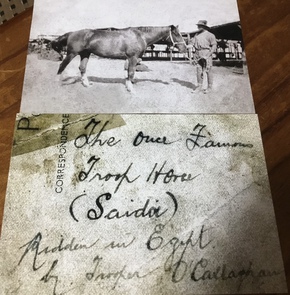 P
CORRESPONDENCE
The Once Famous
Troop Horse
(Saidi)
Ridden in Egypt.
by Trooper O'Callaghan